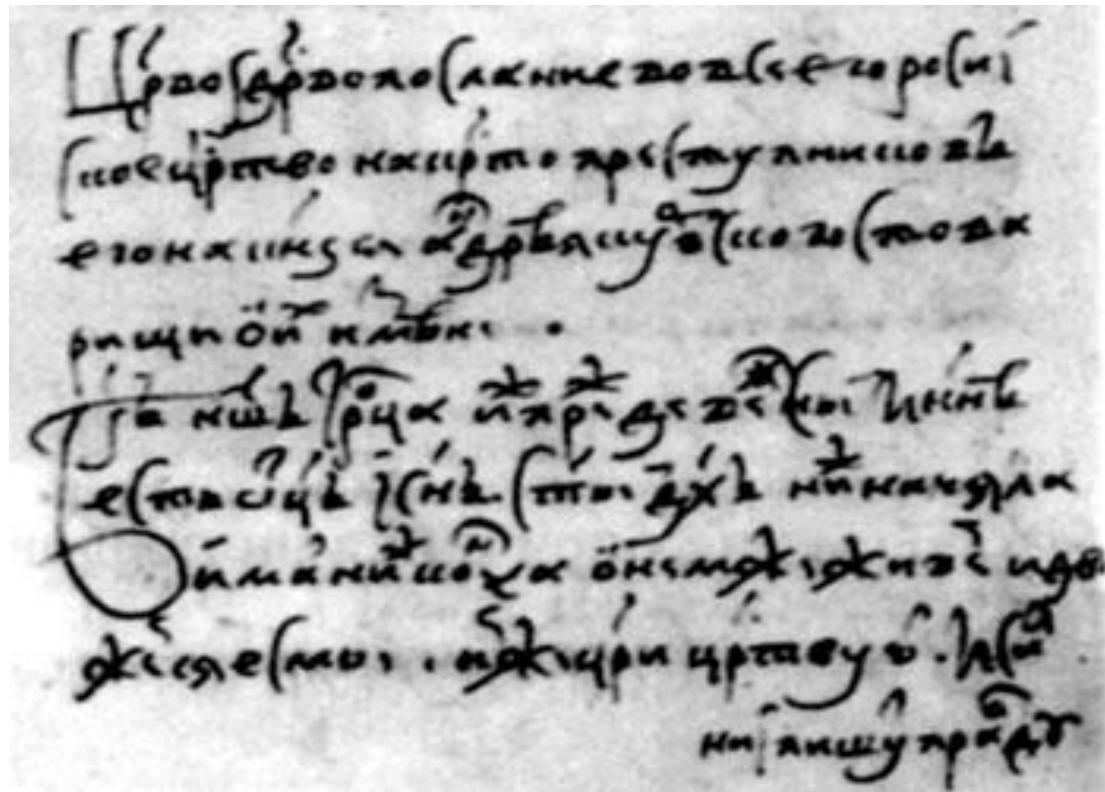 Црво гдрво послание во все его росиі
ское цртво на крто преступниковъ
его на кнзя андрѣя курбского с това
рищи о и измѣне .
Бгъ ншъ трца иже преже векъ сыи і ннѣ
есть ѿцъ і снъ і стыи дхъ ниже начала
имат ниже конца о немже живе и дви
жемся есмы . имже цри цртвую . и си
нии пишу правду